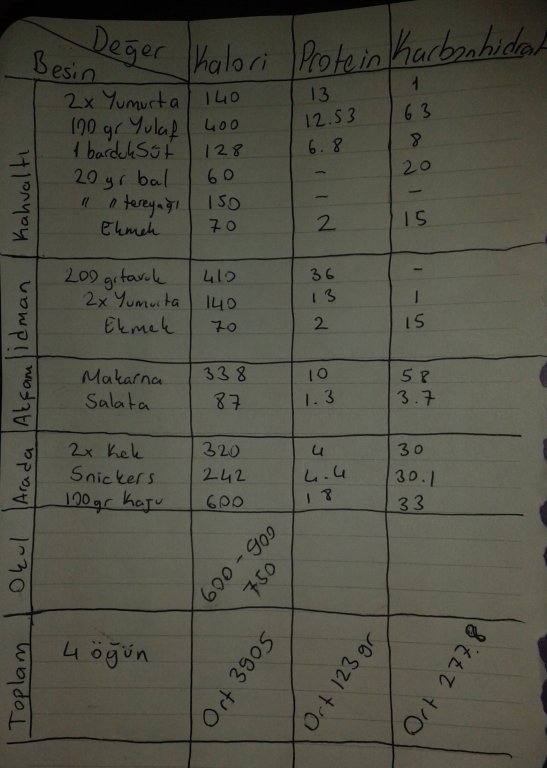 Değer
Besin Kalori Protein Karbonhidrat
Kahvaltı
2x Yumurta 140 13 1
100 gr Yulaf 400 12.53 63
1 bardak Süt 128 6.8 8
20 gr bal 60 - 20
" " tereyağı 150 - -
Ekmek 70 2 15
idman
200 gr tavuk 410 36 -
2x Yumurta 140 13 1
Ekmek 70 2 15
Akşam
Makarna 338 10 58
Salata 87 1.3 3.7
Arada
2x Kek 320 4 30
Snickers 242 4.4 30.1
100 gr Kaju 600 18 33
Okul
600-900
750
Toplam
4 öğün Ort 3905 Ort 123 gr Ort 277.8